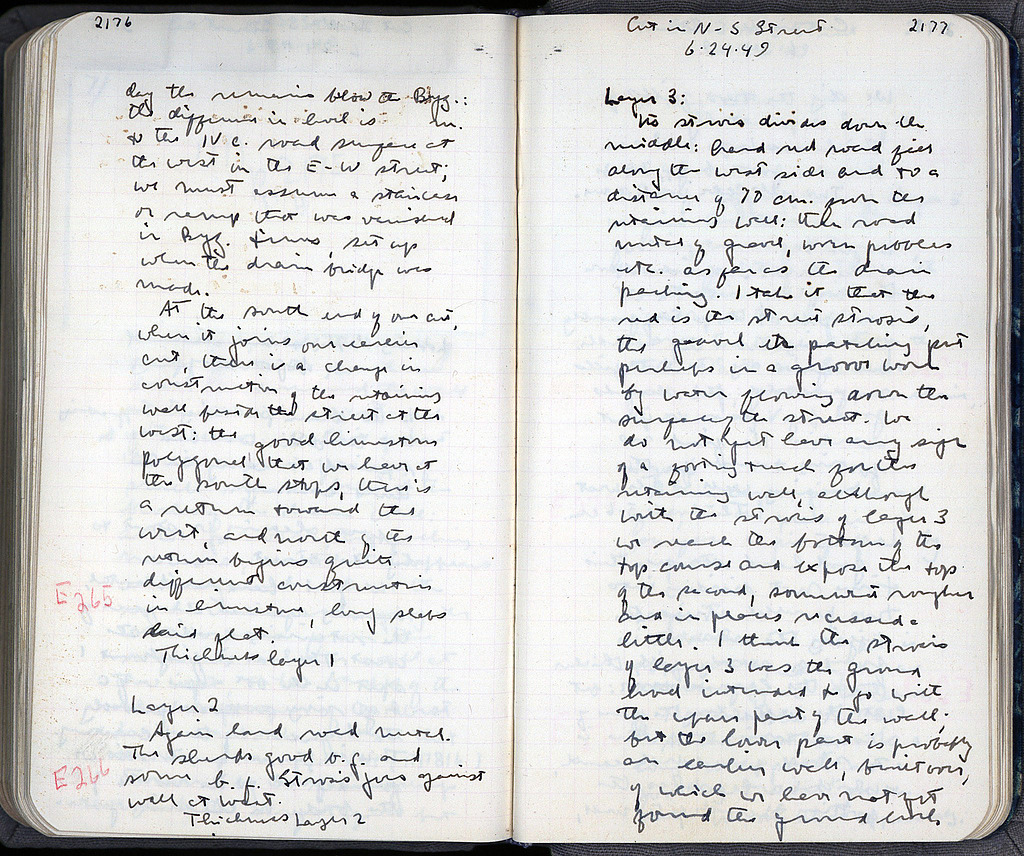 2176
day the remains below the Byz.:
the difference in level is      m.
to the IV c. road surface at
the west in the E-W street;
we must assume a staircase
or ramp that was
in Byz. times, set up
when the drain bridge was
made.
At the south end of our cut,
where it joins our
cut, there is a change in
construction of the retaining
wall beside the street at the
west: the good limestone
polygonal that we have at
the south stops, there is
a return toward the
west, and north of the
return begins quite
different construction
E 265
in limestone, long slabs
laid flat.
Thickness layer 1
Layer 2
Again hard road metal.
The sherds good b.g. and
E 266
some b. f. Strosis goes against
wall at west.
Thickness Layer 2
Cut in N-S Street
2177
6.24.49
Layer 3:
The strosis divides down the
middle: hard red road fill
along the west side and to a
distance of 70 cm. from the
retaining wall: then road
metal of gravel, worn pebbles
etc. as far as the drain
packing. I take it that the
red is the street strosis,
the gravel its patching put
perhaps in a groove worn
by water flowing down the
surface of the street. We
do not yet have any sign
of a footing trench for the
retaining wall, although
with the strosis of layer 3
we reach the bottom of the
top course and expose the top
of the second, somewhat rougher
and in places recessed a
little. I think the strosis
of layer 3 was the ground
level intended to go with
the upper part of the wall;
but the lower part is probably
an earlier wall, built over,
of which we have not yet
found the ground level.